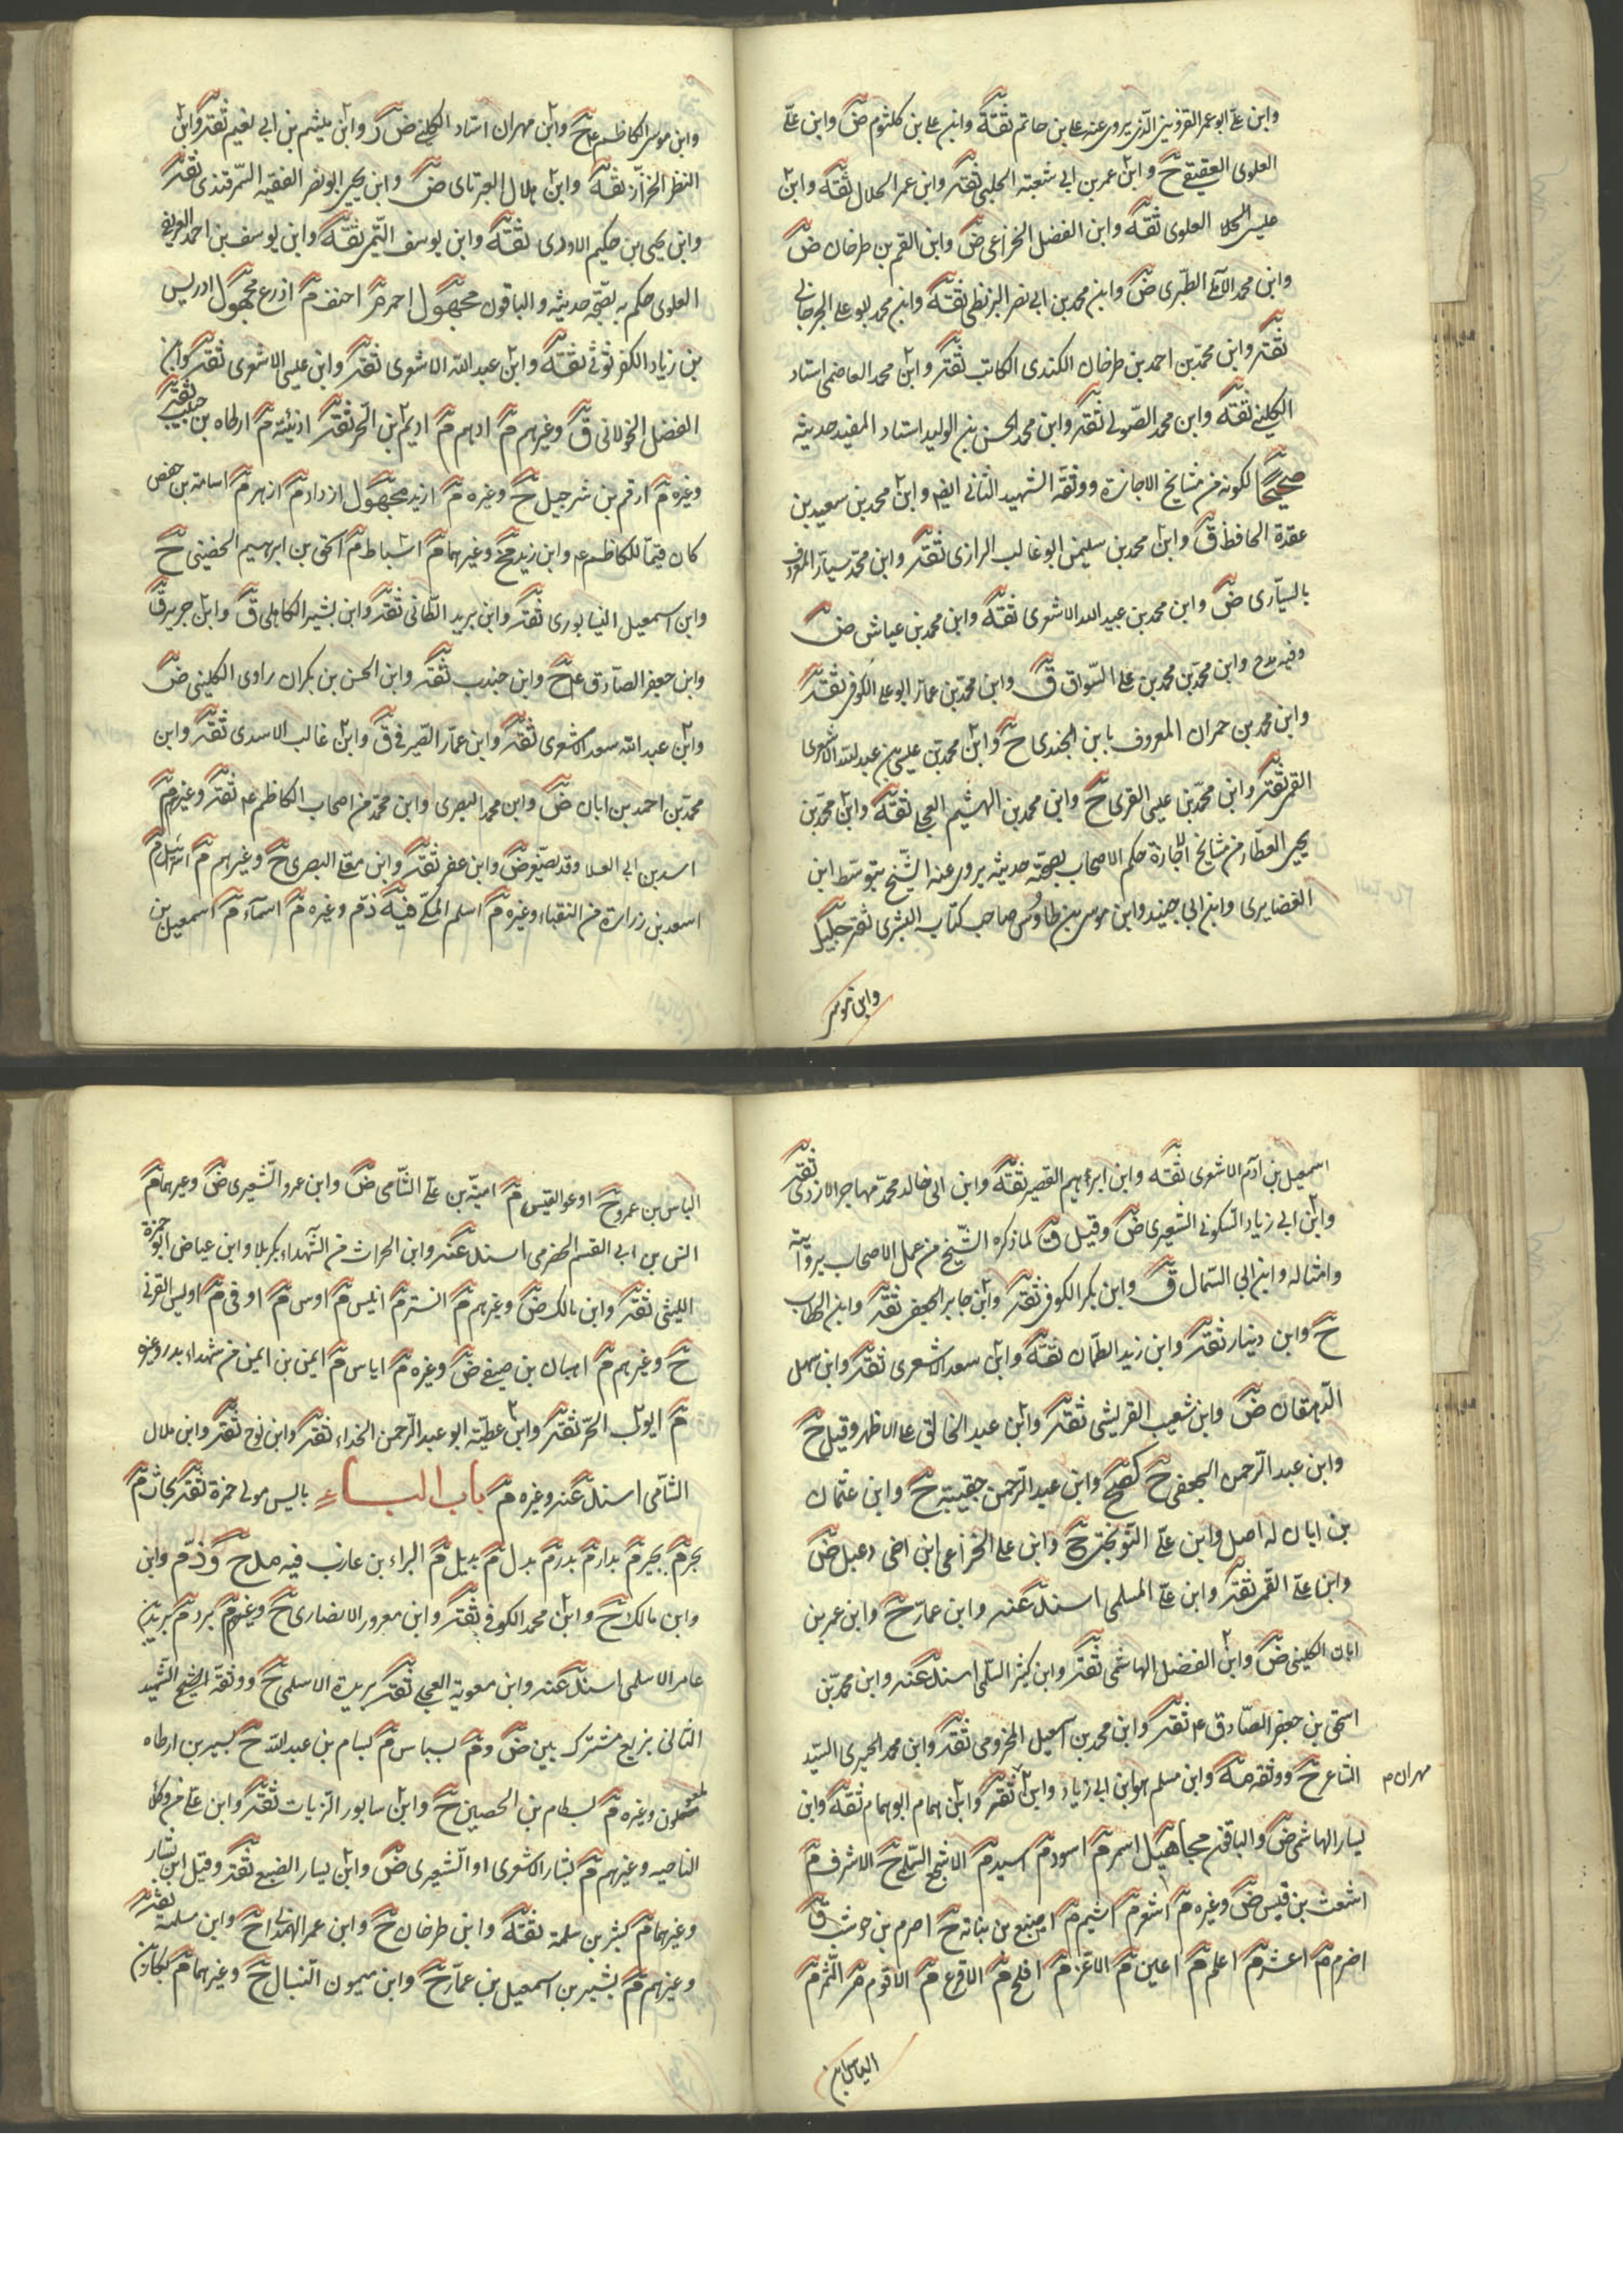 وابن علي ابو عمر القزويني الذي يروي عنه علي بن حاتم ثقة وابن علي بن كلثوم ض وابن علي
العلوي العقيقي ح وابن عمر بن ابي شعبة الحلبي ثقة وابن عمر الحلال ثقة وابن
عيسى العلوي ثقة وابن الفضل الخزاعي ض وابن القسم بن طرخان ض
وابن محمد الآملي الطبري ض وابن محمد بن ابي نصر البزنطي ثقة وابن محمد ابو علي الجرجاني
ثقة وابن محمد بن احمد بن طرخان الكندي الكاتب ثقة وابن محمد العاصمي استاد
الكليني ثقة وابن محمد الصولي ثقة وابن محمد الحسن بن الوليد استاد المفيد حديثه
صحيحا لكونه من مشايخ الاجازة ووثقه الشهيد الثاني ايضا وابن محمد بن سعيد بن
عقدة الحافظ ق وابن محمد بن سليمن ابو غالب الرازي ثقة وابن محمد سيار المعروف
بالسياري ض وابن محمد بن عبيد الله الاشعري ثقة وابن محمد بن عياش ض
وفيه مدح وابن محمد بن محمد بن علي السواق ق وابن محمد بن عمار ابو علي الكوفي ثقة
وابن محمد بن حمران المعروف بابن الجندي ح وابن محمد بن عيسى بن عبد الله الاشعري
القمي ثقة وابن محمد بن عيسى القري ح وابن محمد بن الهيثم العجلي ثقة وابن محمد بن
يحيى العطار من مشايخ الاجازة حكم الاصحاب بصحة حديثه يروي عنه الشيخ بتوسط ابن
الغضايري وابن ابي جيد وابن موسى بن طاوس صاحب كتاب البشرى ثقة جليل
وابن موسى
وابن موسى الكاظم ع ح وابن مهران استاد الكليني ض وابن ميثم بن ابي نعيم ثقة وابن
النظر الخزاز ثقة وابن هلال العبرتاي ض وابن يحيى ابو نصر الفقيه السمرقندي ثقة
وابن يحيى بن حكيم الاودي ثقة وابن يوسف التيمي ثقة وابن يوسف بن احمد العريضي
العلوي حكم بصحة حديثه والباقون مجهول احمر م احنف م اذرع مجهول ادريس
بن زياد الكفرتوثي ثقة وابن عبد الله الاشعري ثقة وابن عيسى الاشعري ثقة وابن
الفضل الخولاني ق وغيرهم م ادهم م اديم بن الحر ثقة اذينة م ارطاه بن حبيب ثقة
وغيره م ارقم بن شرحبيل ح وغيره م ازيد مجهول ازداد م ازهر م اسامة بن حفص
كان قيما للكاظم ع وابن زيد ح وغيرهما م اسباط م اسحق بن ابرهيم الحضيني ح
وابن اسمعيل النيسابوري ثقة وابن بريد الطائي ثقة وابن بشير الكاهلي ق وابن جرير ق
وابن جعفر الصادق ع ح وابن جندب ثقة وابن الحسن بن بكران راوي الكليني ض
وابن عبد الله سعد الاشعري ثقة وابن عمار الصيرفي ق وابن غالب الاسدي ثقة وابن
محمد بن احمد بن ابان ض وابن محمد البصري وابن محمد من اصحاب الكاظم ع ثقة وغيرهم م
اسد بن ابي العلا وقد يصغر ض وابن عفر ثقة وابن معلى البصري ح وغيرهم م اسرائيل م
اسعد بن زرارة من النقباء وغيره م اسلم المكي فيه ذم وغيره م اسماء م اسمعيل بن
اسمعيل بن آدم الاشعري ثقة وابن ابرهيم القصير ثقة وابن ابي خالد محمد مهاجر الازدي ثقة
وابن ابي زياد السكوني الشعيري ض وقيل ق لما ذكره الشيخ من عمل الاصحاب بروايته
وامثاله وابن ابي السمال ق وابن بكر الكوفي ثقة وابن جابر الجعفي ثقة وابن الخطاب
ح وابن دينار ثقة وابن زيد الطحان ثقة وابن سعد الاشعري ثقة وابن سهل
الدهقان ض وابن شعيب القريشي ثقة وابن عبد الخالق على الاظهر وقيل ح
وابن عبد الرحمن الجعفي ح وابن عبد الرحمن حقيبة ح وابن عثمان
بن ابان له اصل وابن علي النوبختي ح وابن علي الخزاعي ابن اخي دعبل ض
وابن علي القمي ثقة وابن علي المسلمي اسند عنه وابن عمار ح وابن عمر بن
ابان الكليني ض وابن الفضل الهاشمي ثقة وابن كثير السلمي اسند عنه وابن محمد بن
اسحق بن جعفر الصادق ع ثقة وابن محمد بن اسمعيل المخزومي ثقة وابن محمد الحميري السيد
الشاعر ح ووثقه مة وابن مسلم هو ابن ابي زياد وابن ثقة وابن همام ابو همام ثقة وابن
مهران م
يسار الهاشمي ض والباقي مجاهيل اسمر م اسود م اسيد م الاشج السلح الاشرف م
اشعث بن قيس ض وغيره م اشعر م اشيم م اصبغ بن نباته ح اصرم بن حوشب ق
اضرم م اعشر م اعلم م اعين م الاغر م افلح م الاقرع م الاقوم م الثم م
الياس بن
الياس بن عمرو ح او عوالقيس م امية بن علي الشامي ض وابن عمرو الشعيري ض وغيرهما م
انس بن ابي القسم الحضرمي اسند عنه وابن الحراث من الشهداء بكربلا وابن عياض ابو حمزة
الليثي ثقة وابن مالك ض وغيرهم م انسة م انيس م اوس م اوفى م اويس القرني
ح وغيرهم م اهبان بن صيفي ض وغيره م اياس م ايمن بن ايمن من شهداء بدر وغيره
م ايوب الحر ثقة وابن عطية ابو عبد الرحمن الحذاء ثقة وابن نوح ثقة وابن هلال
الشامي اسند عنه وغيره م باب الباء باليس مولى حمزة ثقة بجاث م
بجر م بجير م بدار م بدر م بدل م بديل م البراء بن عازب فيه مدح وذم وابن
وابن مالك ح وابن محمد الكوفي ثقة وابن معرور الانصاري ح وغيرهم م برد م بريد بن
عامر الاسلمي اسند عنه وابن معوية العجلي ثقة بريدة الاسلمي ح ووثقه الشيخ الشهيد
الثاني بزيع مشترك بين ض و م بسباس م بسام بن عبد الله ح بسير بن ارطاه
ملعون وغيره م بسطام بن الحصين ح وابن سابور الزيات ثقة وابن علي من وكلاء
الناحيه وغيرهم م بشار الاشعري او الشعيري ض وابن يسار الضبعي ثقة وقيل ابن بشار
وغيرهما م بشر بن سلمة ثقة وابن طرخان ح وابن عمر الهمداني ح وابن مسلمة ثقة
وغيرهم م بشير بن اسمعيل بن عمار ح وابن ميمون النبال ح وغيرهما م بكار بن